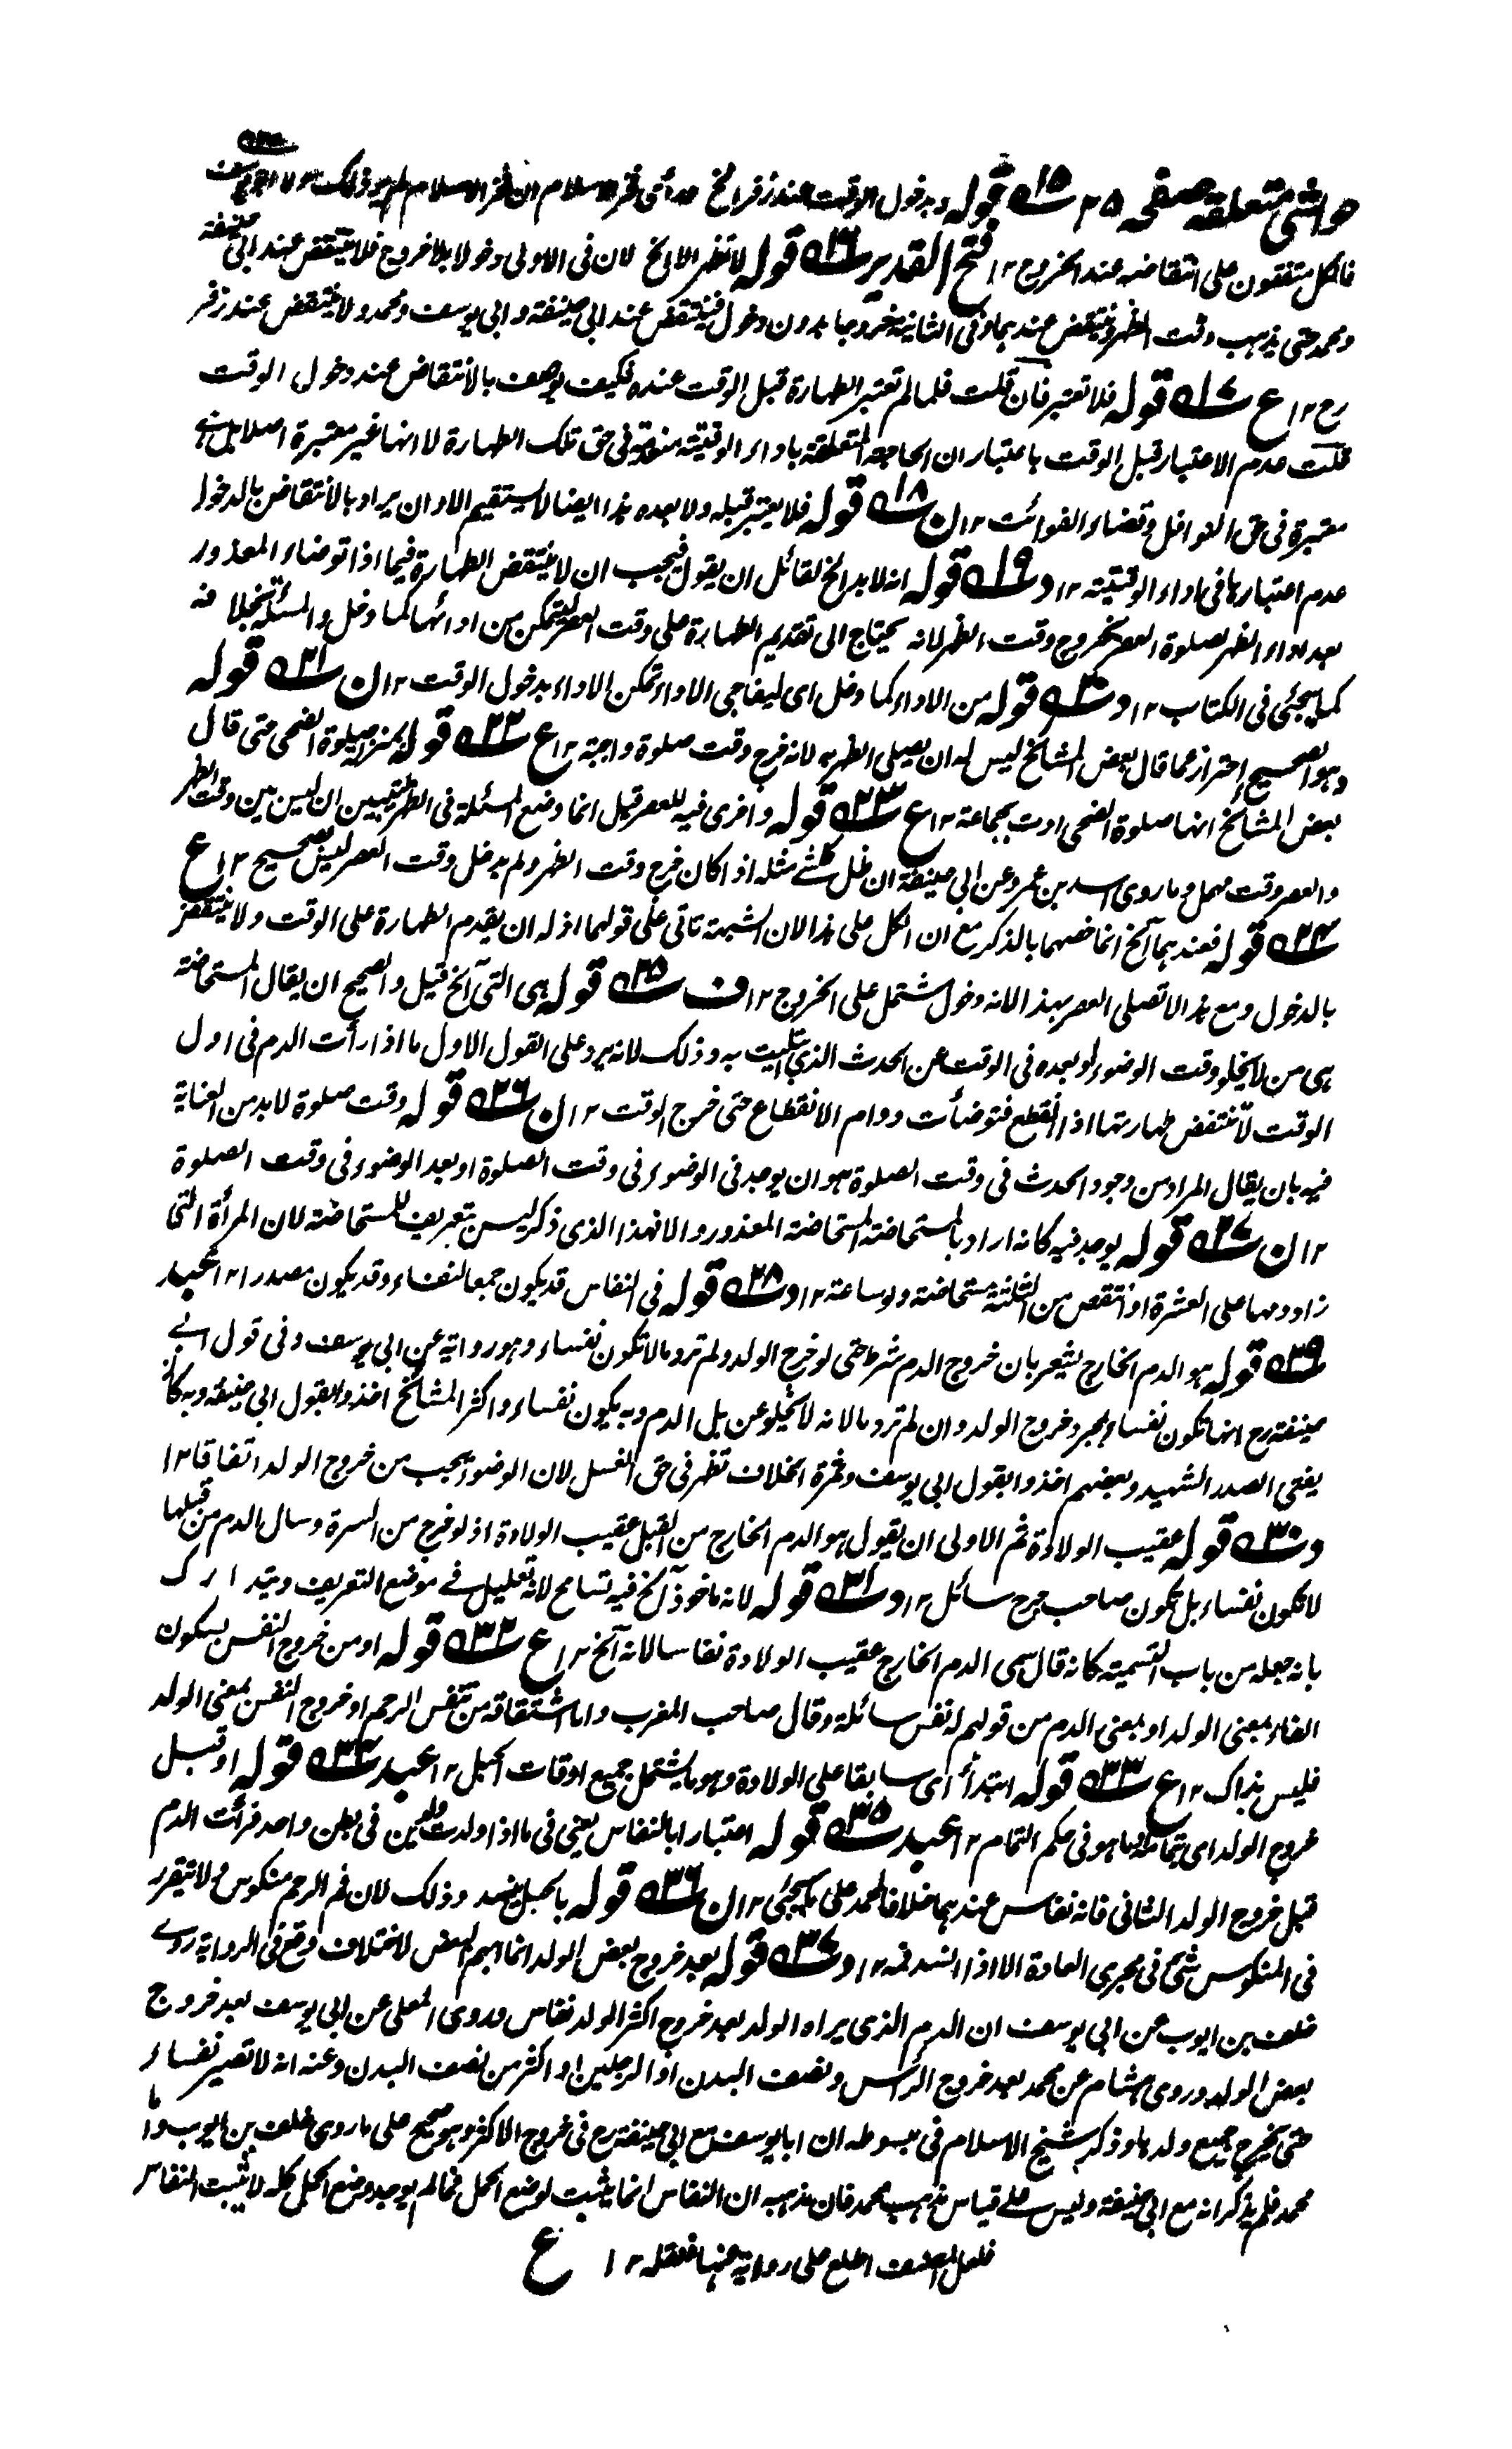 حواشی متعلقہ صفحہ ۲۵ ۱۵ قوله وبدخول الوقت عند زفر الخ رأى فخر الاسلام ان فخر الاسلام
فالكل متفقون على انتقاضه عند الخروج ۱۲ فتح القدير ۱۶ قوله لا تظهر الا الخ لان فى الاولى دخولا بلا خروج فلا ينتقض عند ابى حنيفة
ومحمد حتى يذهب وقت الظهر وينتقض عندهما وفى الثانية خروجا بدون دخول فينتقض عند ابى حنيفة و ابى يوسف ومحمد ولا ينتقض عند زفر
رح ۱۲ ع ۱۷ قوله فلا تعتبر فان قلت فلما لم تعتبر الطهارة قبل الوقت عنده فكيف يوصف بالانتقاض عند دخول الوقت
قلت عدم الاعتبار قبل الوقت باعتبار ان الحاجة المتعلقة باداء الوقتية منفية فى حق تلك الطهارة لا انها غير معتبرة اصلا بل هى
معتبرة فى حق النوافل وقضاء الفوائت ۱۲ ن ۱۸ قوله فلا يعتبر قبله ولا بعده هذا ايضا لا يستقيم الا ان يراد بالانتقاض بالدخول
عدم اعتبارها فى اداء الوقتية ۱۲ د ۱۹ قوله انه لا بد الخ لقائل ان يقول فيجب ان لا ينتقض الطهارة فيما اذا توضاء المعذور
بعد اداء الظهر لصلوة العصر بخروج وقت الظهر لانه يحتاج الى تقديم الطهارة على وقت العصر ليتمكن من ادائها كما دخل والمسئلة بخلافه
كما يجئ فى الكتاب ۱۲ د ۲۰ قوله من الاداء كما دخل اى ليفاجى الاداء تمكن الاداء بدخول الوقت ۱۲ ن ۲۱ قوله
وهو الصحيح احتراز عما قال بعض المشائخ ليس له ان يصلى الظهر به لانه خرج وقت صلوة واجبة ۱۲ ع ۲۲ قوله بمنزلة صلوة الضحى حتى قال
بعض المشائخ انها صلوة الضحى اديت بجماعة ۱۲ ع ۲۳ قوله واخرى فيه للعصر قيل انما وضع المسئلة فى الظهر ليتبين ان ليس بين وقت الظهر
والعصر وقت مهمل وما روى اسد بن عمرو عن ابى حنيفة ان ظل كل شئ مثله اذا كان خرج وقت الظهر ولم يدخل وقت العصر ليس بصحيح ۱۲ ع
۲۴ قوله فعندهما الخ انما خصهما بالذكر مع ان الكل على هذا لان الشبهة تاتى على قولهما اذ له ان يقدم الطهارة على الوقت ولا ينتقض
بالدخول ومع هذا لا تصلى العصر بهذا لانه دخول مشتمل على الخروج ۱۲ ف ۲۵ قوله هى التى الخ قيل والصحيح ان يقال المستحاضة
هى من لا يخلو وقت الوضوء او بعده فى الوقت عن الحدث الذى ابتليت به وذلك لانه يرد على القول الاول ما اذا رأت الدم فى اول
الوقت لا تنتقض طهارتها اذا انقطع فتوضأت ودام الانقطاع حتى خرج الوقت ۱۲ ن ۲۶ قوله وقت صلوة لا بد من العناية
فيه بان يقال المراد من وجود الحدث فى وقت الصلوة هو ان يوجد فى الوضوء فى وقت الصلوة او بعد الوضوء فى وقت الصلوة
۱۲ ن ۲۷ قوله يوجد فيه كانه اراد بالمستحاضة المستحاضة المعذور والا فهذا الذى ذكر ليس بتعريف للمستحاضة لان المرأة التى
زاد دمها على العشرة او نقص من الثلثة مستحاضة ولو ساعة ۱۲ د ۲۸ قوله فى النفاس قد يكون جمعا لنفساء وقد يكون مصدرا ۱۲ عبيد
۲۹ قوله هو الدم الخارج يشعر بان خروج الدم شرط حتى لو خرج الولد ولم تر دما لا تكون نفساء وهو رواية عن ابى يوسف وفى قول ابى
حنيفة رح انها تكون نفساء بمجرد خروج الولد وان لم تر دما لانه لا يخلو عن بل الدم وبه يكون نفساء واكثر المشائخ اخذوا بقول ابى حنيفة وبه كان
يفتى الصدر الشهيد وبعضهم اخذوا بقول ابى يوسف وثمرة الخلاف تظهر فى حق الغسل لان الوضوء يجب من خروج الولد اتفاقا ۱۲
د ۳۰ قوله عقيب الولادة ثم الاولى ان يقول هو الدم الخارج من القبل عقيب الولادة اذ لو خرج من السرة وسال الدم من قبلها
لا تكون نفساء بل تكون صاحب جرح سائل ۱۲ د ۳۱ قوله لانه ماخوذ الخ فيه تسامح لانه تعليل فى موضع التعريف ويتدارك
بانه جعله من باب التسمية كانه قال سمى الدم الخارج عقيب الولادة نفاسا لانه الخ ۱۲ ع ۳۲ قوله او من خروج النفس بسكون
الفاء بمعنى الولد او بمعنى الدم من قولهم له نفس سائلة وقال صاحب المغرب واما اشتقاقه من تنفس الرحم او خروج النفس بمعنى الولد
فليس بذاك ۱۲ ع ۳۳ قوله ابتدأ اى سابقا على الولادة وهو ما يشتمل جميع اوقات الحبل ۱۲ عبيد ۳۴ قوله او قبل
خروج الولد اى بتمامه او ما هو فى حكم التمام ۱۲ عبيد ۳۵ قوله اعتبارا بالنفاس يعنى فى ما اذا ولدت ولدين فى بطن واحد فرأت الدم
قبل خروج الولد الثانى فانه نفاس عندهما خلافا لمحمد على ما يجئ ۱۲ ن ۳۶ قوله بالحبل ينسد وذلك لان فم الرحم منكوس ولا يتقرر
فى المنكوس شئ فى مجرى العادة الا اذا انسد فمه ۱۲ د ۳۷ قوله بعد خروج بعض الولد انما ابهم البعض لاختلاف وقع فى الرواية روى
خلف بن ايوب عن ابى يوسف ان الدم الذى يراه الولد بعد خروج اكثر الولد نفاس وروى المعلى عن ابى يوسف بعد خروج
بعض الولد وروى هشام عن محمد بعد خروج الرأس ونصف البدن او الرجلين او اكثر من نصف البدن وعنه انه لا تصير نفساء
حتى يخرج جميع ولدها وذكر شيخ الاسلام فى مبسوطه ان ابا يوسف مع ابى حنيفة رح فى خروج الاكثر وهو صحيح على ما روى خلف بن ايوب واما
محمد فلم يذكر انه مع ابى حنيفة وليس على قياس مذهب محمد فان مذهبه ان النفاس انما يثبت لوضع الحمل فما لم يوجد وضع الحمل كله لا يثبت النفاس
فلعل المصنف اطلع على رواية عنها فنقله ۱۲ ع